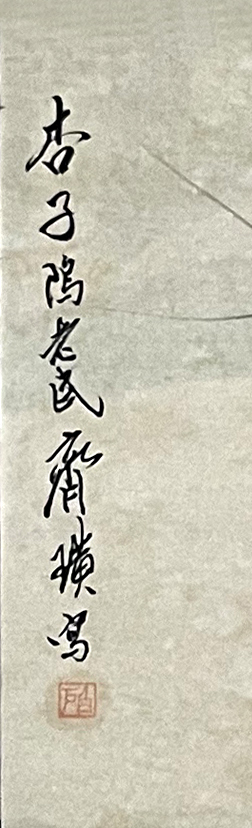 杏子隖老民齊璜寫